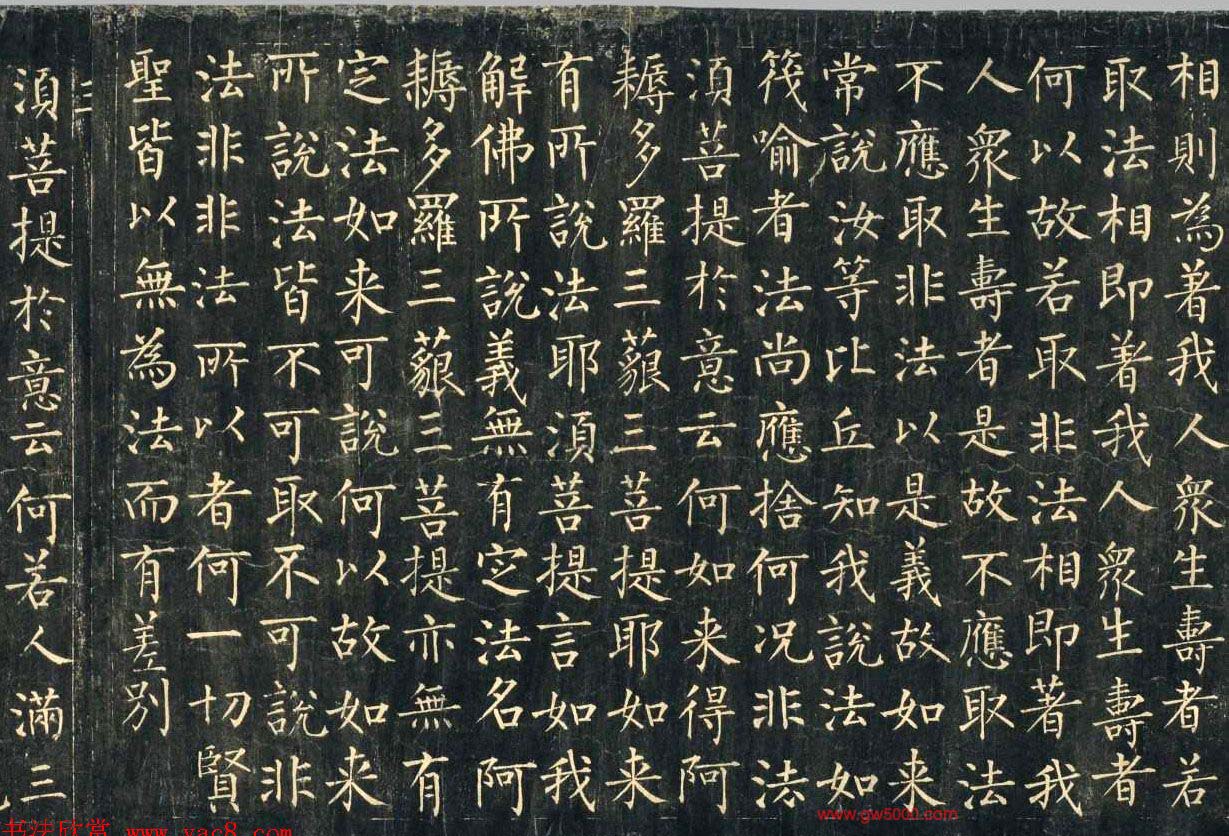 相則為著我人衆生壽者若
取法相即著我人衆生壽者
何以故若取非法相即著我
人衆生壽者是故不應取法
不應取非法以是義故如来
常說汝等比丘知我說法如
筏喻者法尚應捨何况非法
須菩提於意云何如来得阿
耨多羅三藐三菩提耶如来
有所說法耶須菩提言如我
解佛所說義無有定法名阿
耨多羅三藐三菩提亦無有
定法如来可說何以故如来
所說法皆不可取不可說非
法非非法所以者何一切賢
聖皆以無為法而有差别
三
須菩提於意云何若人滿三
书法欣赏 www.yac8.com